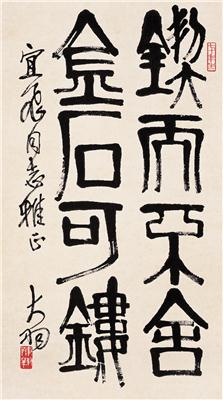 鍥而不舍
金石可鏤
宜同志雅正
大羽